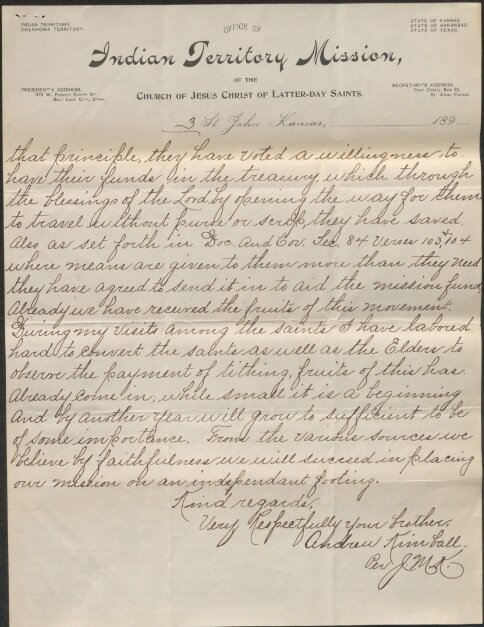 INDIAN TERRITORY.
OKLAHOMA TERRITORY.
STATE OF KANSAS.
STATE OF ARKANSAS.
STATE OF TEXAS.
OFFICE OF
Indian Territory Mission,
OF THE
PRESIDENT'S ADDRESS,
SALT LAKE CITY, UTAH.
SECRETARY'S ADDRESS,
ST. JOHN, KANSAS
CHURCH OF JESUS CHRIST OF LATTER-DAY SAINTS.
3 St. John Kansas, 189
that principle, they have voted a willingness to
have their funds in the treasury which through
the blessings of the Lord, by opening the way for them
to travel without purse or scrip, they have saved.
Also as set forth in Doc. And Cov. Sec. 84 Verses 103, & 104
where means are given to them more than they need
they have agreed to send it in to aid the mission fund,
Already we have received the fruits of this movement.
During my visits among the saints I have labored
hard to convert the saints as well as the Elders to
observe the payment of tithing, fruits of this has
Already come in, while small it is a beginning
and by another year will grow to sufficient to be
of some importance. From the various sources we
believe by faithfulness we will succeed in placing
our mission on an independant footing.
Kind regards,
Very Respectfully your brother,
Andrew Kimball.
Per J M K